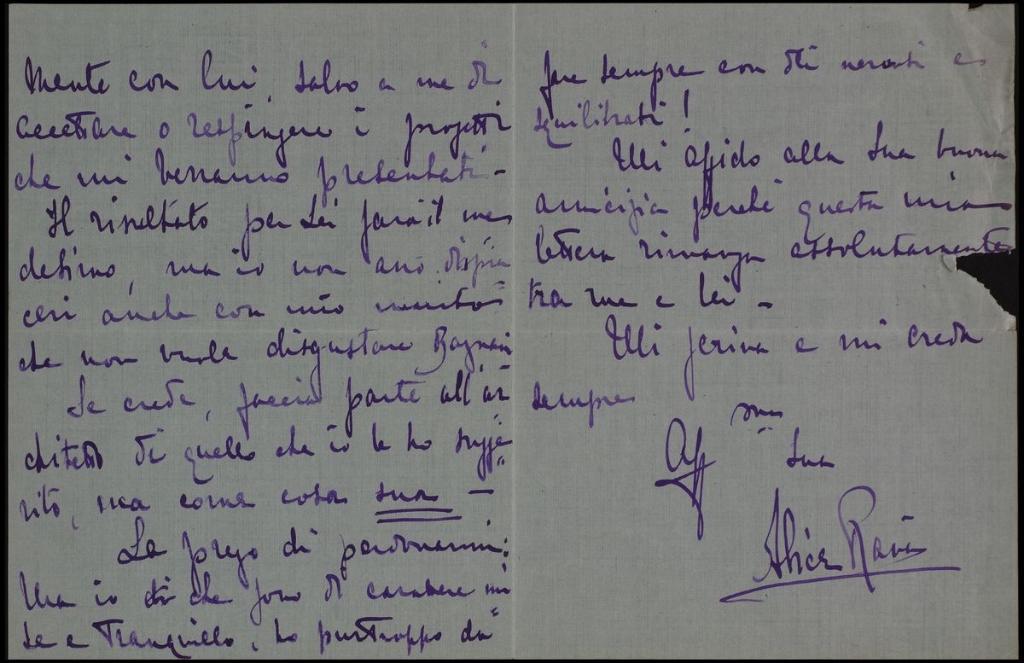 mente con lui, salvo a me di
accettare o respingere i progetti
che mi verranno presentati -
Il risultato per Lei sarà il me
desimo, ma io non avrò dispia
ceri anche con mio marito
che non vuole disgustare
Se crede, faccia parte all'ar
chitetto di quello che io le ho sugge
rito, ma come cosa sua -
La prego di perdonarmi:
Ma io che sono di carattere mi
te e tranquillo, ho purtroppo da
fare sempre con dei nevrotici
squilibrati!
Mi affido alla sua buona
amicizia perché questa mia
lettera rimanga assolutamente
tra me e lei -
Mi scriva e mi creda
sempre
Aff ma
sua
Alice